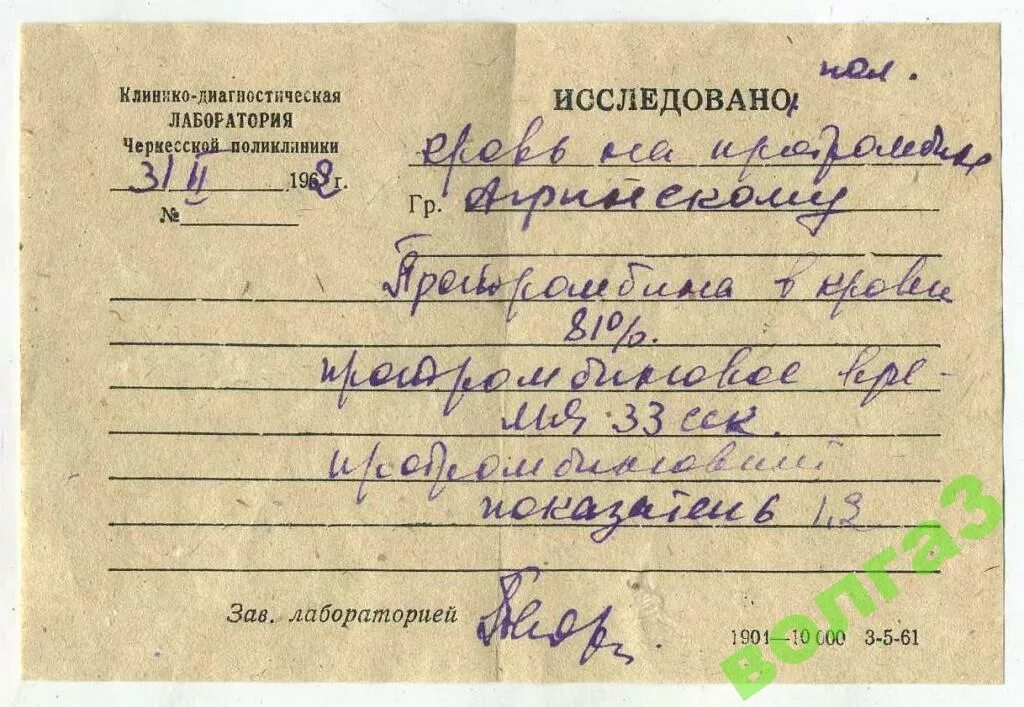 пол.
Клинико-диагностическая
ЛАБОРАТОРИЯ
Черкесской поликлиники
31 II 1962 г.
№
ИССЛЕДОВАНО
кровь на протромбин
Гр. Агринскому
Протромбина в крови
81%.
протромбиновое вре-
мя 33 сек.
протромбиновый
показатель 1,2
Зав. лабораторией
1901—10 000 3-5-61
волга3